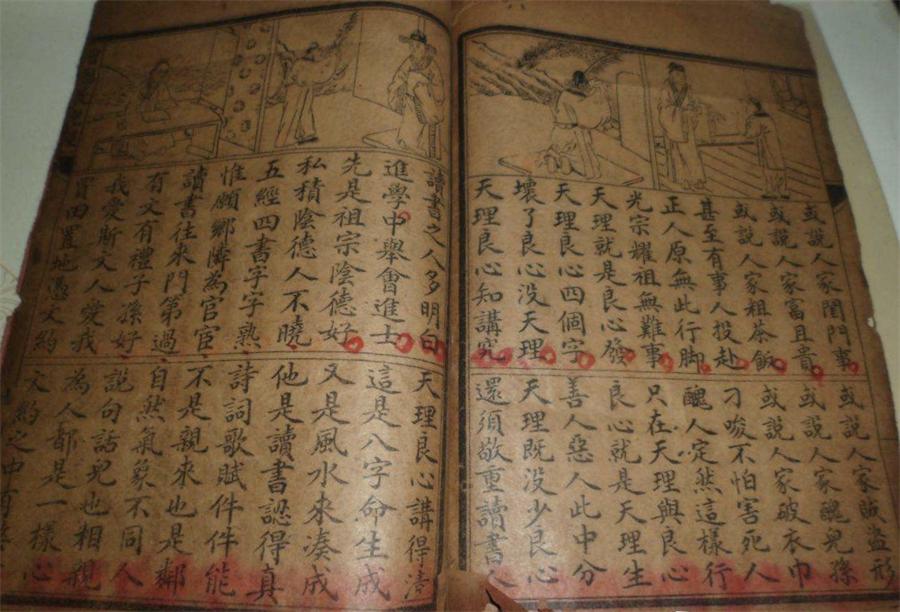 或說人家閨門事
或說人家賊盜形
或說人家富且貴
或說人家醜兒孫
或說人家粗茶飯
或說人家破衣巾
甚至有事人投赴
刁唆不怕害死人
正人原無此行脚
醜人定然這樣行
光宗耀祖無難事
只在天理與良心
天理就是良心發
良心就是天理生
天理良心四個字
善人惡人此中分
壞了良心没天理
天理既没少良心
天理良心知講究
還須敬重讀書人
讀書之人多明白
天理良心講得清
進學中舉會進士
這是八字命生成
先是祖宗陰德好
又是風水來湊成
私積陰德人不曉
他是讀書認得真
五經四書字字熟
詩詞歌賦件件能
惟願鄉鄰為官宦
不是親來也是鄰
讀書往來門第過
自然氣象不同人
有文有禮子孫好
說句話兒也相親
我愛斯文人愛我
為人都是一樣心
買田置地憑文約
文約之中